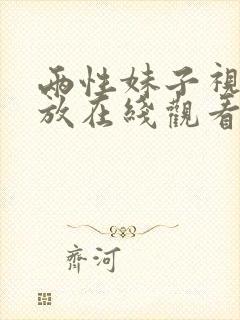 兩性妹子視
放在綫觀看
齊河